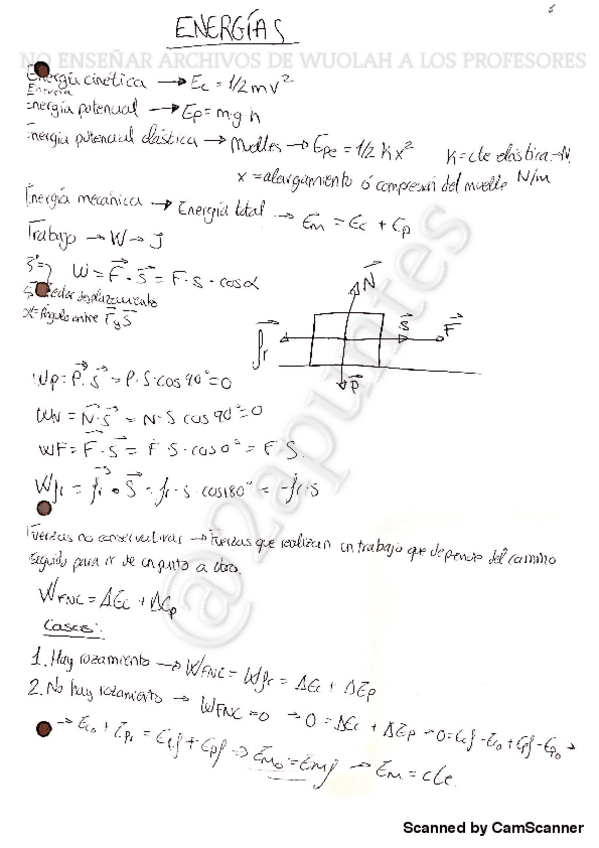 ENERGÍAS
NO ENSEÑAR ARCHIVOS DE WUOLAH A LOS PROFESORES
Energía cinética → Ec = 1/2 mv²
Energía
Energía potencial → Ep = m·g·h
Energía potencial elástica → Muelles → Epe = 1/2 K x²   K = cte elástica → N/m
x = alargamiento ó compresión del muelle
Energía mecánica → Energía total → Em = Ec + Ep
Trabajo → W → J
W = F · S = F · S · cos α
S = Vector desplazamiento
α = Ángulo entre F y S
N
fr
S
F
P
Wp = P · S = P · S · cos 90° = 0
WN = N · S = N · S cos 90° = 0
WF = F · S = F · S · cos 0° = F · S.
Wfr = fr · S = fr · s cos 180° = -fr · s
Fuerzas no conservativas → Fuerzas que realizan un trabajo que depende del camino
seguido para ir de un punto a otro.
WFNC = ΔEc + ΔEp
Casos:
1. Hay rozamiento → WFNC = Wfr = ΔEc + ΔEp
2. No hay rozamiento → WFNC = 0 → 0 = ΔEc + ΔEp → 0 = Ecf - Eco + Epf - Epo →
→ Eco + Epo = Ecf + Epf → Emo = Emf → Em = cte.
@2apuntes
Scanned by CamScanner